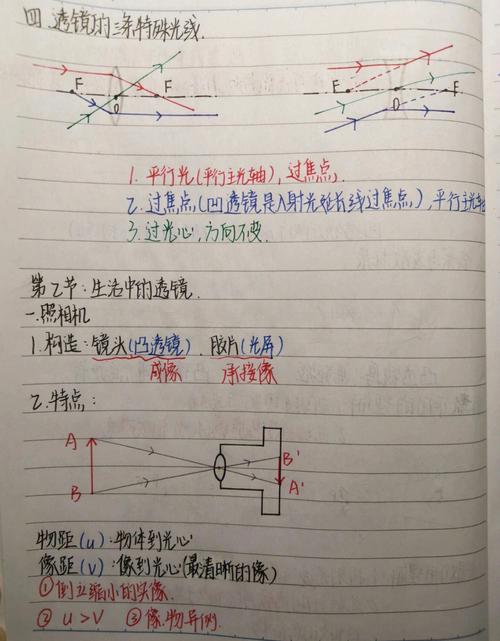 四.透镜的三条特殊光线.
F O F
F O F
1.平行光(平行主光轴),过焦点.
2.过焦点(凹透镜是入射光延长线过焦点),平行主光轴
3.过光心,方向不变.
第2节:生活中的透镜.
一.照相机
1.构造:镜头(凸透镜).胶片(光屏)
成像 承接像
2.特点:
A
B'
B
A'
物距(u):物体到光心
像距(v):像到光心(最清晰的像)
①倒立缩小的实像.
②u>v ③像.物异侧.